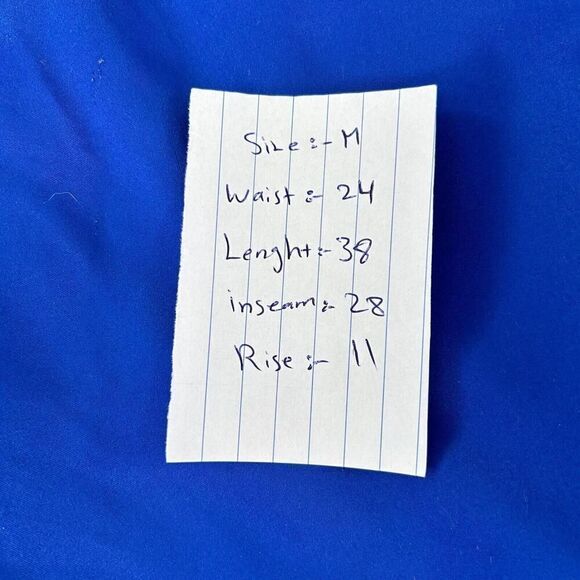 Size :- M
Waist :- 24
Lenght :- 38
inseam :- 28
Rise :- 11